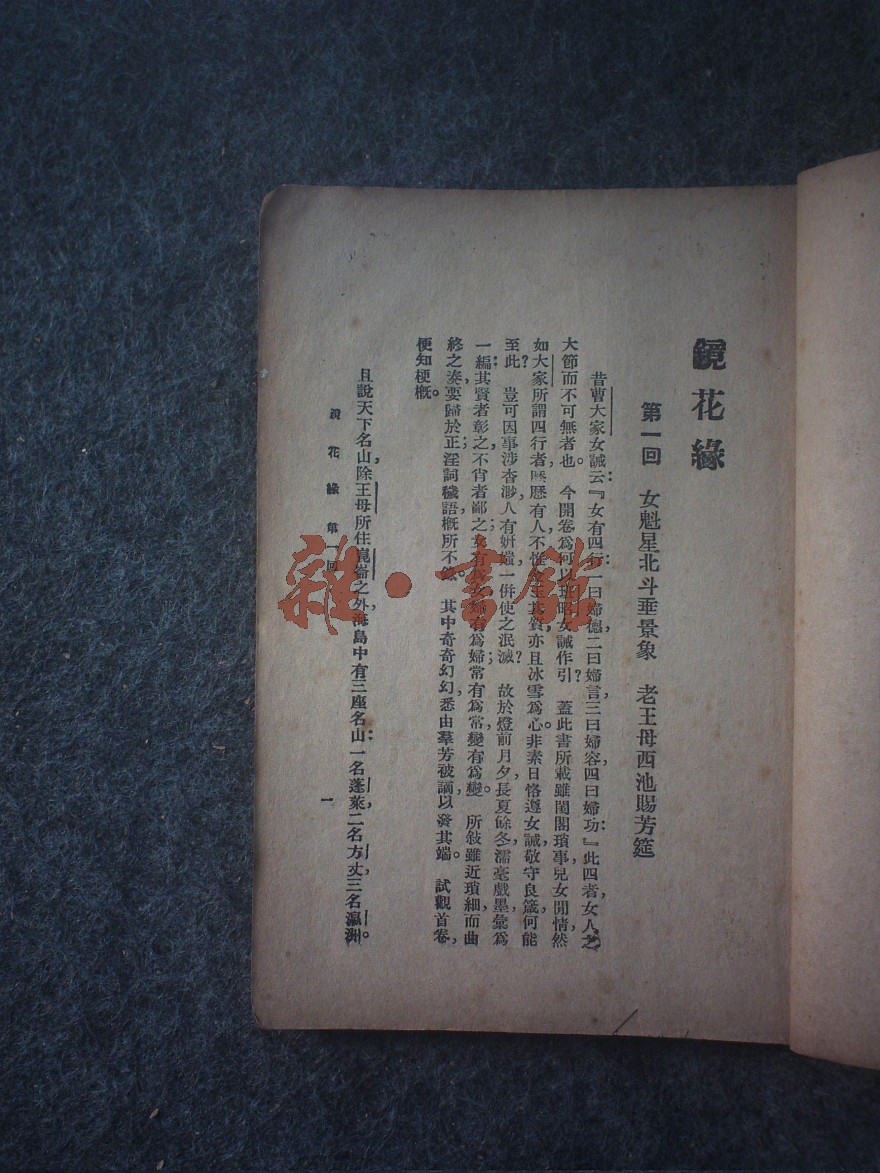 鏡花緣
第一回 女魁星北斗垂景象 老王母西池賜芳筵
昔曹大家女誡云：『女有四行：一曰婦德，二曰婦言，三曰婦容，四曰婦功。』此四者，女人之
大節而不可無者也。 今開卷爲何以班昭女誡作引？ 蓋此書所載雖閨閣瑣事，兒女閒情，然
如大家所謂四行者，歷歷有人，不惟金玉其質，亦且冰雪爲心。非素日恪遵女誡，敬守良箴，何能
至此？ 豈可因事涉杳渺，人有妍媸，一併使之泯滅？ 故於燈前月夕，長夏餘冬，濡毫戲墨，彙爲
一編；其賢者彰之，不肖者鄙之；女有爲女，婦有爲婦；常有爲常，變有爲變。 所敍雖近瑣細，而曲
終之奏，要歸於正，淫詞穢語，概所不錄。 其中奇奇幻幻，悉由羣芳被謫，以發其端。 試觀首卷，
便知梗概。
且說天下名山，除王母所住崑崙之外，海島中有三座名山：一名蓬萊，二名方丈，三名瀛洲。
鏡花緣 第一回
一
雜·書館